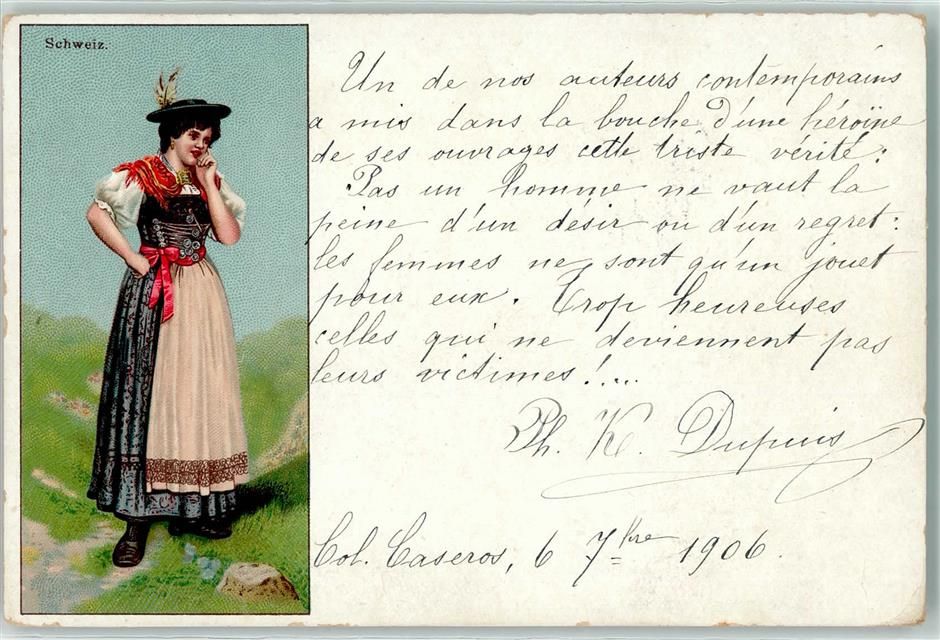 Schweiz.
Un de nos auteurs contemporains
a mis dans la bouche d'une héroïne
de ses ouvrages cette triste vérité:
Pas un homme ne vaut la
peine d'un désir ou d'un regret:
les femmes ne sont qu'un jouet
pour eux. Trop heureuses
celles qui ne deviennent pas
leurs victimes!....
Ph. K. Dupuis
Col. Caseros, 6 7bre 1906.